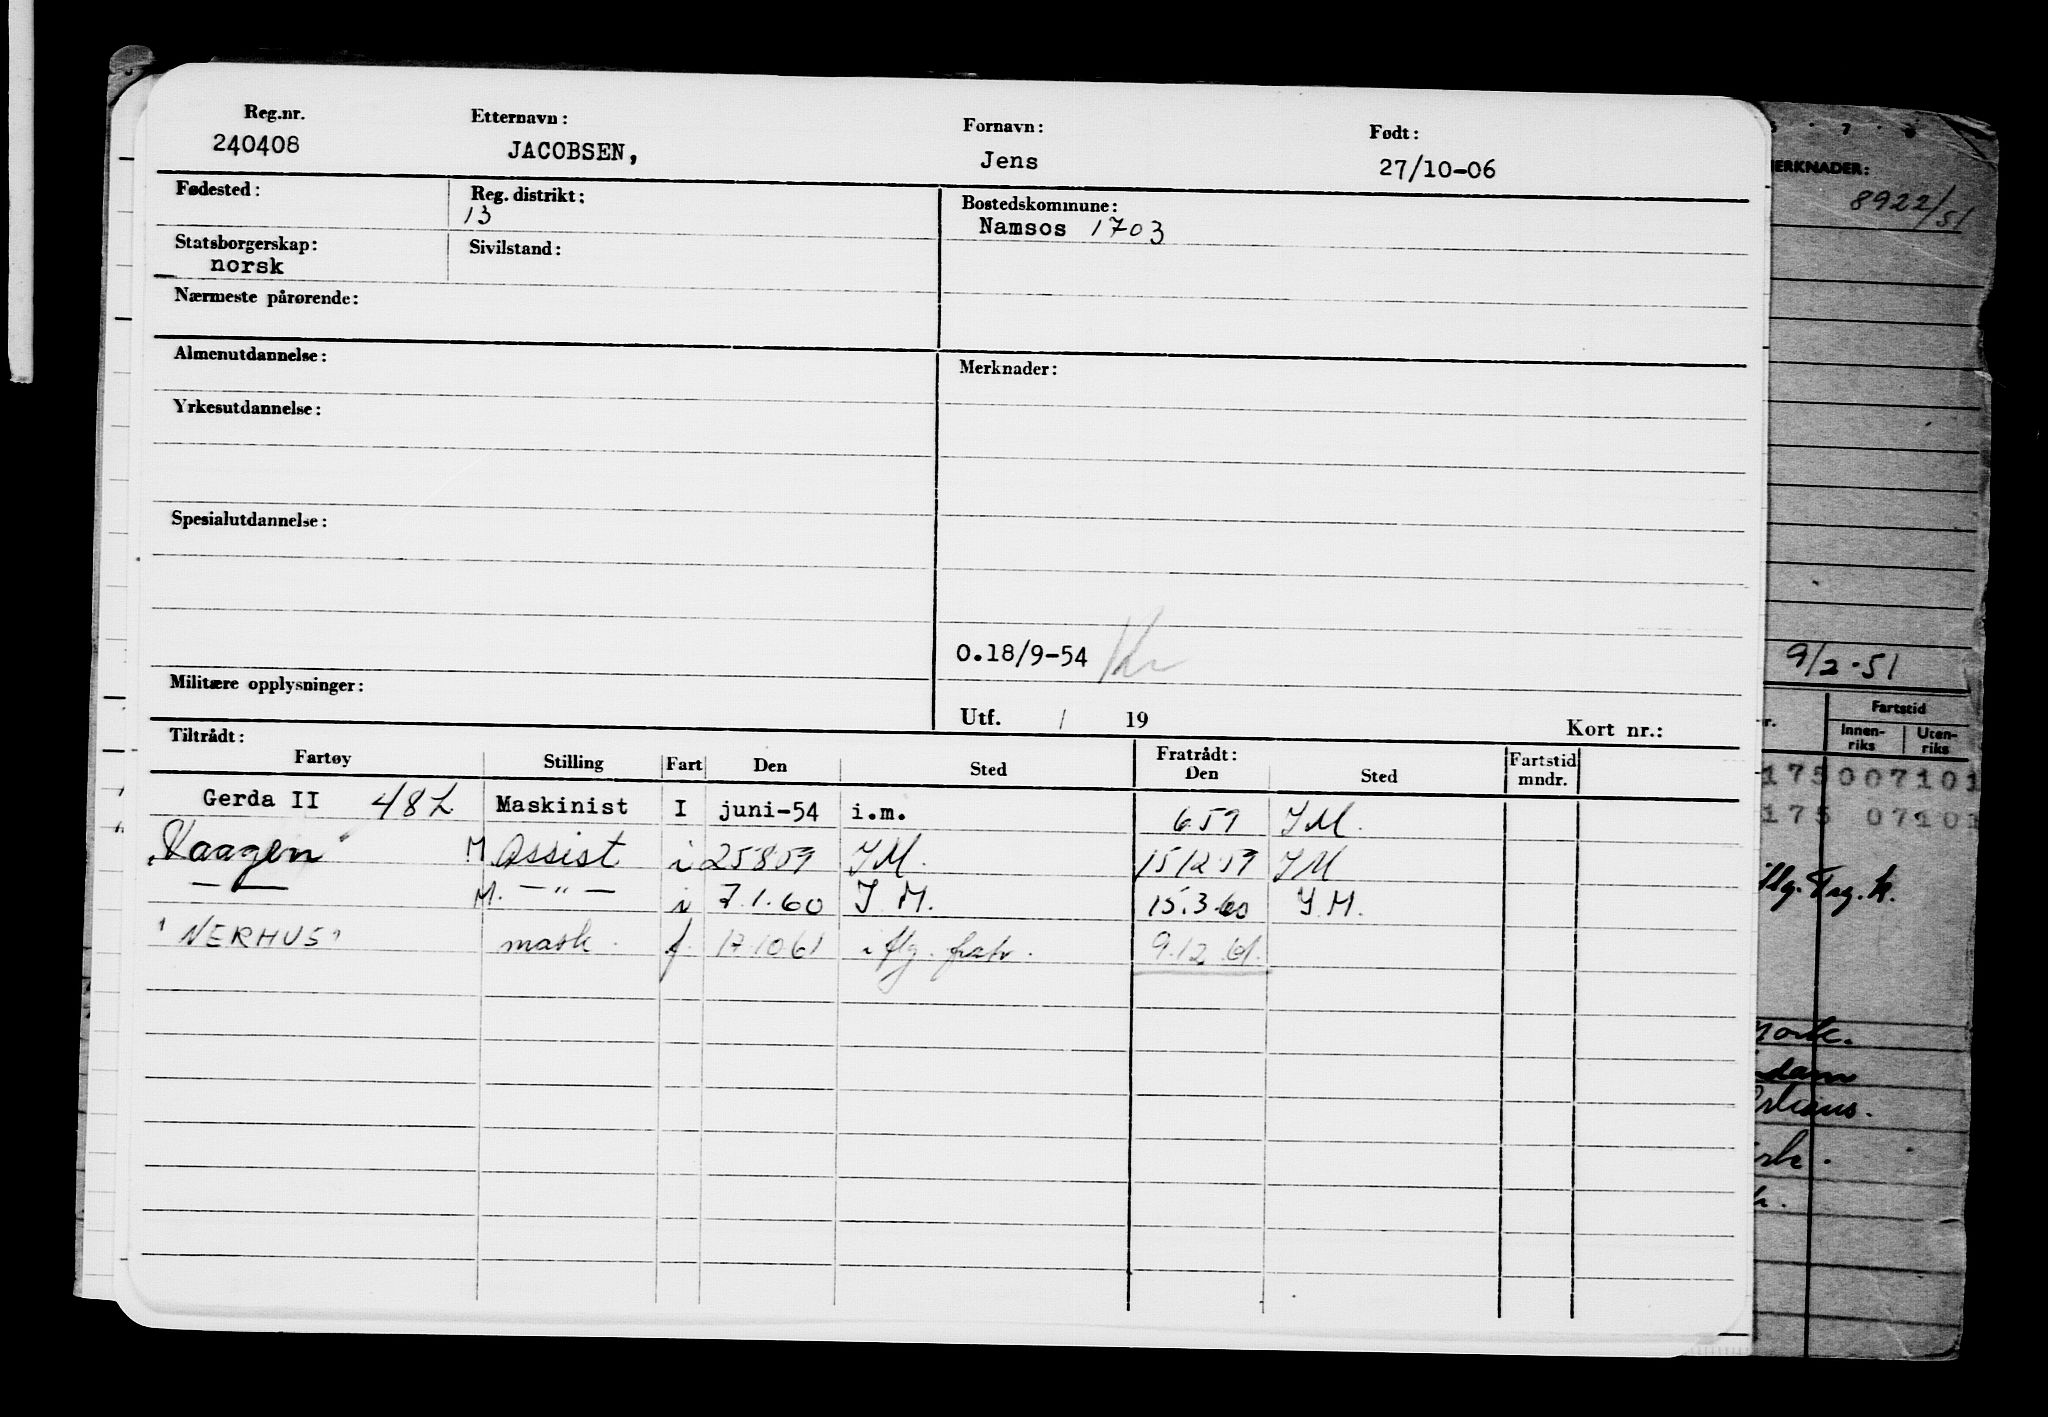 Reg.nr. Etternavn: Fornavn: Født:
240408 JACOBSEN, Jens 27/10-06
Fødested: Reg. distrikt: Bostedskommune:
13 Namsos 1703
Statsborgerskap: Sivilstand:
norsk
Nærmeste pårørende:
Almenutdannelse: Merknader:
Yrkesutdannelse:
Spesialutdannelse:
O.18/9-54
Militære opplysninger:
Utf. / 19 Kort nr.:
Tiltrådt: Fratrådt: Fartstid
Fartøy Stilling Fart Den Sted Den Sted mndr.
Gerda II 48L Maskinist I juni-54 i.m. 6 59 I M.
"Vaagen" M Assist i 25 8 59 I M. 15 12 59 I M
— — M. — " — i 7.1.60 I M. 15.3 60 I M.
"NERHUS" mask. f. 17 10 61 i flg. fratr. 9.12 61.
6 . 7 . 8
MERKNADER:
8922/51
9/2-51
Fartstid
Innen-riks Uten-riks
175007101
175 07101